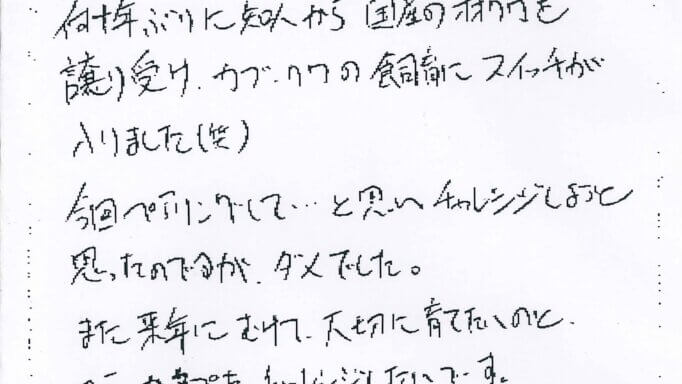 何十年ぶりに知人から国産のオオクワを
譲り受け、カブ・クワの飼育にスイッチが
入りました(笑)
今回ペアリングして…と思いチャレンジしようと
思ったのですが、ダメでした。
また来年にむけて、大切に育てたいのと、
チャレンジしたいです。